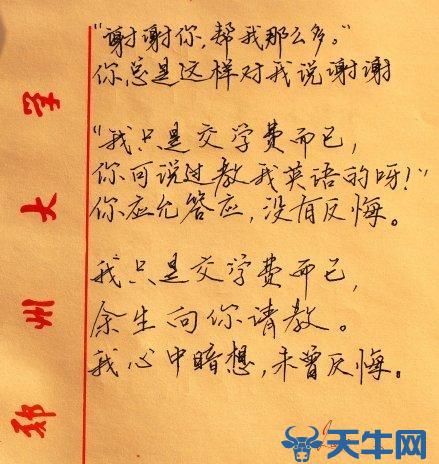 "谢谢你,帮我那么多。"
你总是这样对我说谢谢
"我只是交学费而已,
你可说过教我英语的呀!"
你应允答应,没有反悔。
我只是交学费而已,
余生向你请教。
我心中暗想,未曾反悔。
郑州大学
天牛网